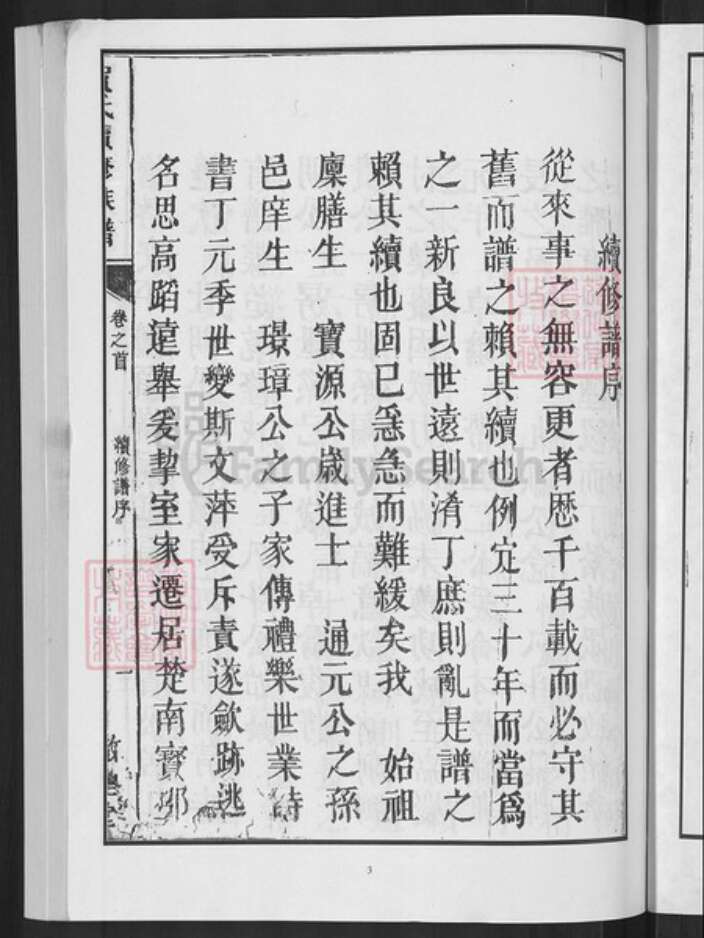 續修譜序
從來事之無容更者歷千百載而必守其
舊而譜之賴其續也例定三十年而當爲
之一新良以世遠則淆丁庶則亂是譜之
賴其續也固已急急而難緩矣我 始祖
廩膳生 寶源公歲進士 通元公之孫
邑庠生 璟璋公之子家傳禮樂世業詩
書丁元季世變斯文萍受斥責遂歛跡逃
名思高蹈遠舉爰挈室家遷居楚南寶郡
氏續修族譜
卷之首
續修譜序
一
3
FamilySearch